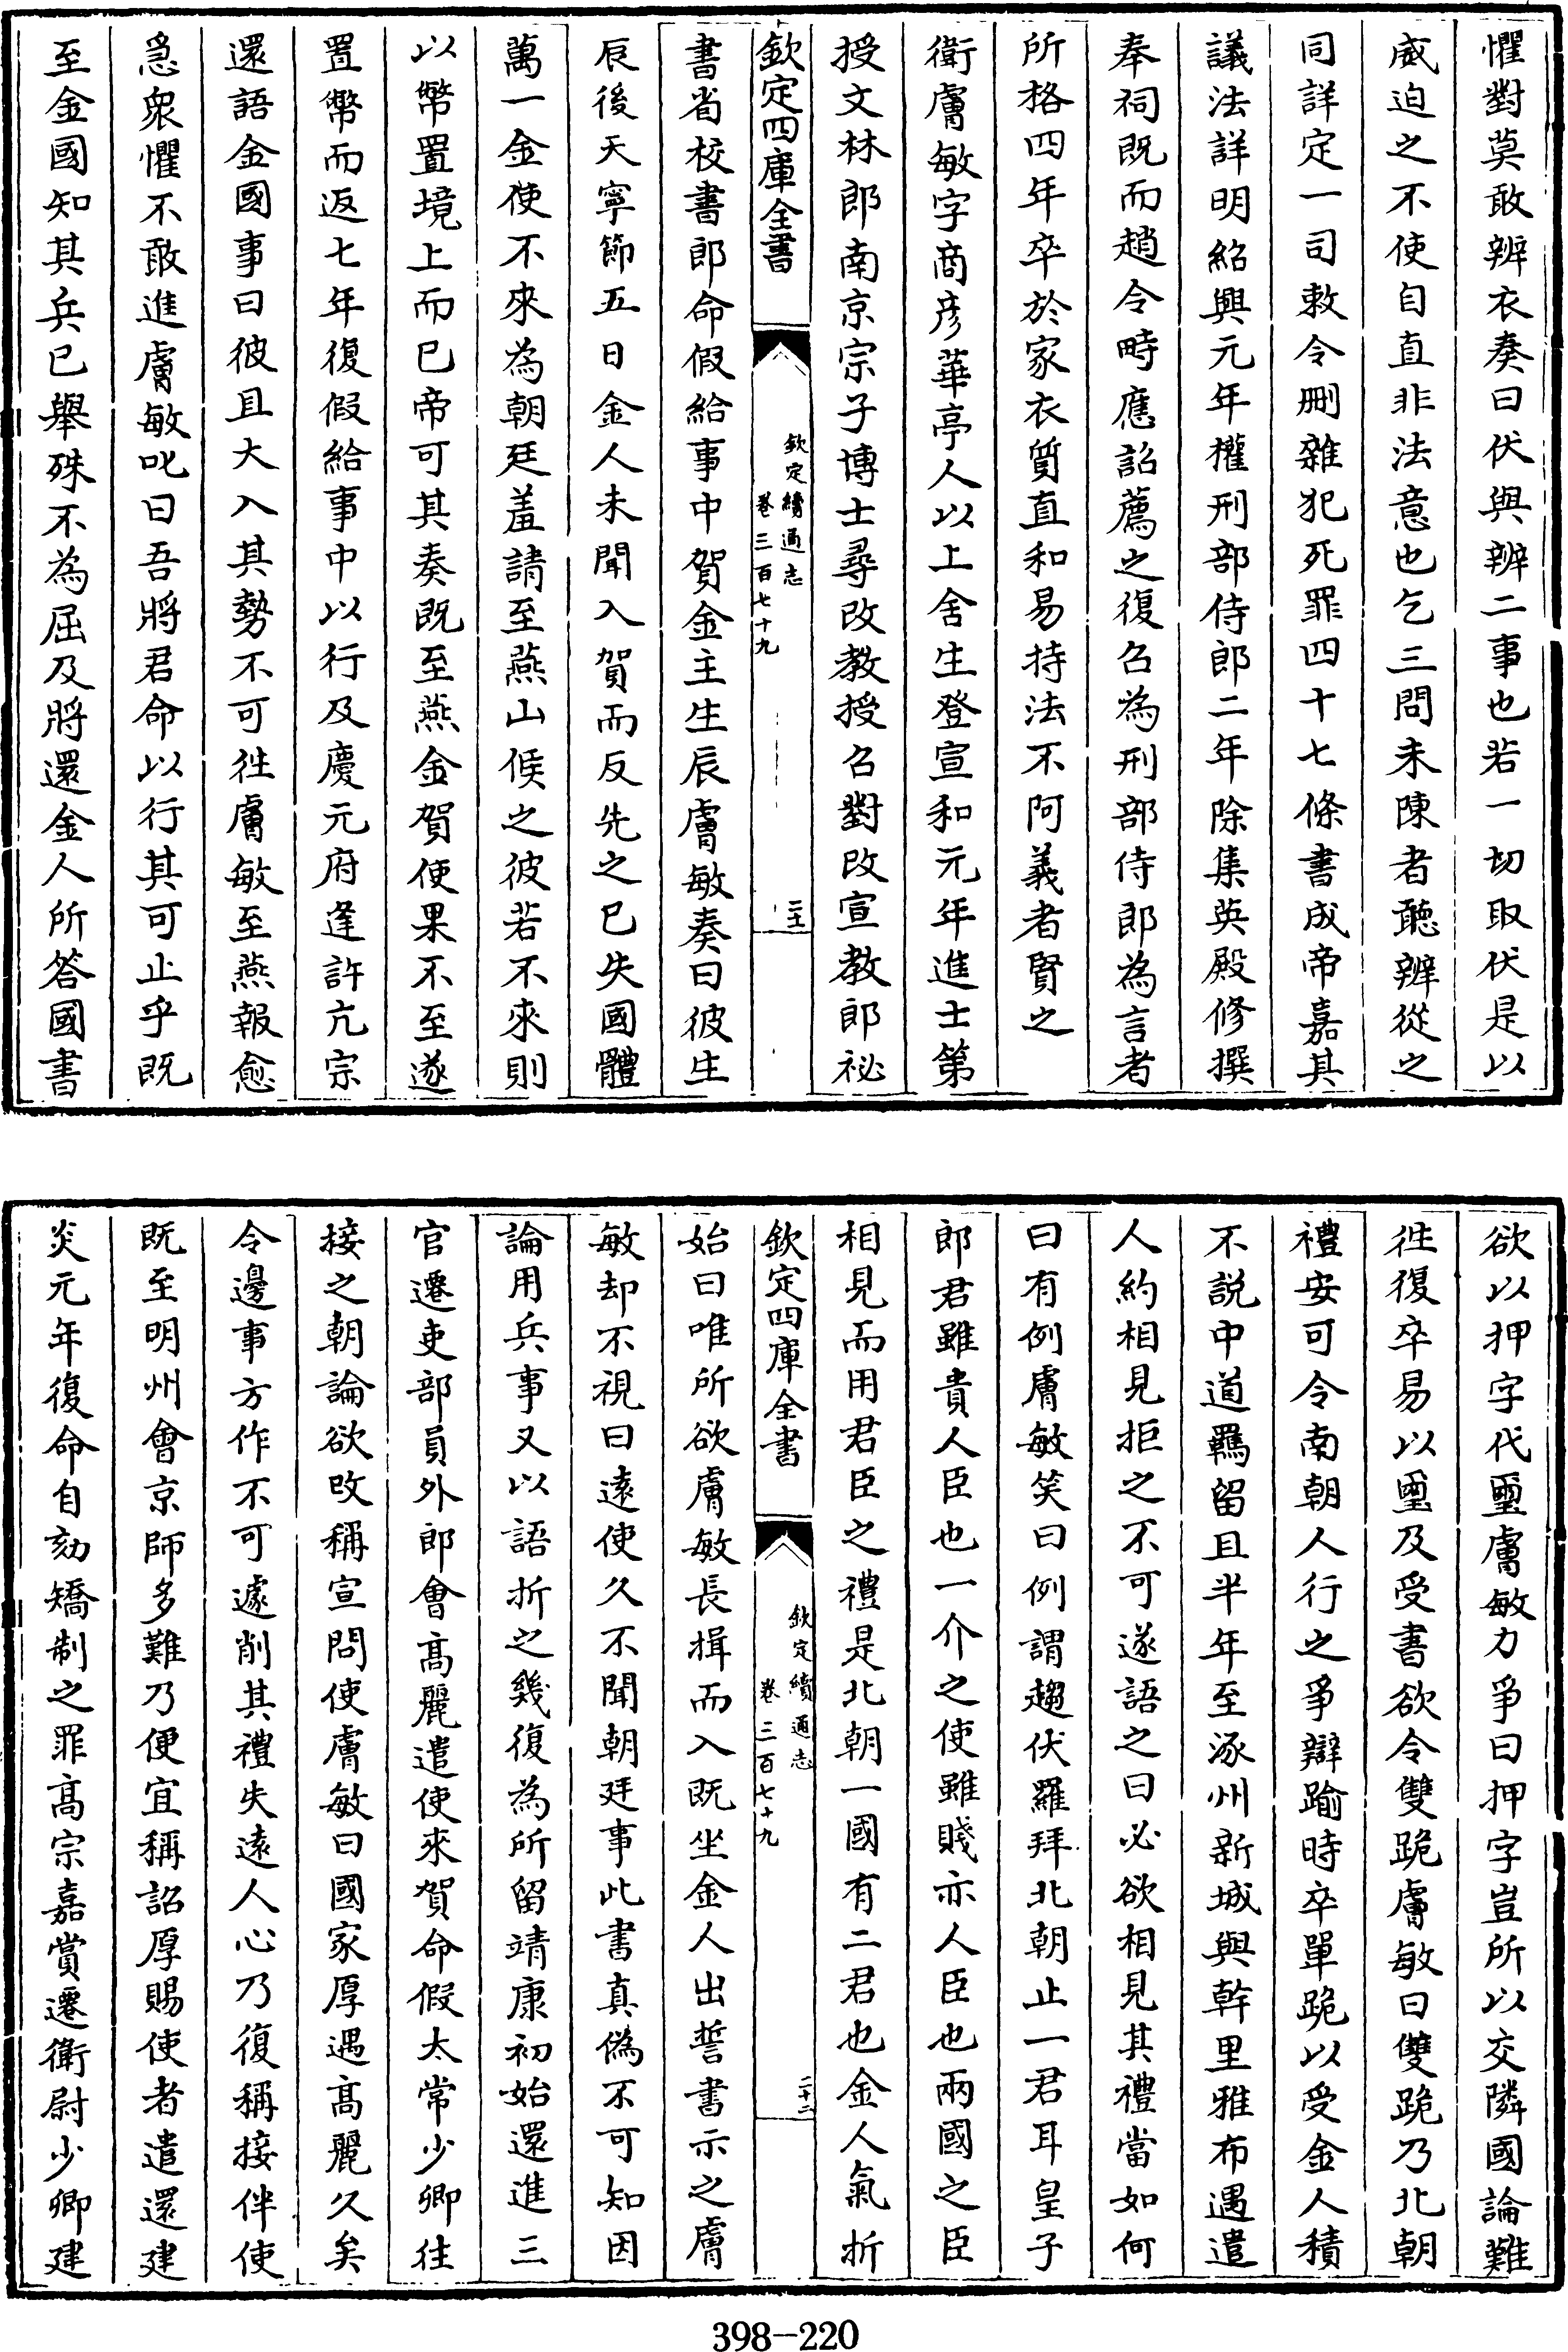 懼對莫敢辨衣奏曰伏與辨二事也若一切取伏是以
威迫之不使自直非法意也乞三問未陳者聽辨從之
同詳定一司敕令删雜犯死罪四十七條書成帝嘉其
議法詳明紹興元年權刑部侍郎二年除集英殿修撰
奉祠既而趙令畤應詔薦之復召為刑部侍郎為言者
所格四年卒於家衣質直和易持法不阿義者賢之
衛膚敏字商彦華亭人以上舍生登宣和元年進士第
授文林郎南京宗子博士尋改教授召對改宣教郎祕
欽定四庫全書
欽定續通志
卷三百七十九
二十一
書省校書郎命假給事中賀金主生辰膚敏奏曰彼生
辰後天寧節五日金人未聞入賀而反先之已失國體
萬一金使不來為朝廷羞請至燕山候之彼若不來則
以幣置境上而已帝可其奏既至燕金賀使果不至遂
置幣而返七年復假給事中以行及慶元府逢許亢宗
還語金國事曰彼且大入其勢不可徃膚敏至燕報愈
急衆懼不敢進膚敏叱曰吾將君命以行其可止乎既
至金國知其兵已舉殊不為屈及將還金人所答國書
欲以押字代璽膚敏力爭曰押字豈所以交隣國論難
徃復卒易以璽及受書欲令雙跪膚敏曰雙跪乃北朝
禮安可令南朝人行之爭辯踰時卒單跪以受金人積
不説中道羈留且半年至涿州新城與斡里雅布遇遣
人約相見拒之不可遂語之曰必欲相見其禮當如何
曰有例膚敏笑曰例謂趨伏羅拜北朝止一君耳皇子
郎君雖貴人臣也一介之使雖賤亦人臣也兩國之臣
相見而用君臣之禮是北朝一國有二君也金人氣折
欽定四庫全書
欽定續通志
卷三百七十九
二十二
始曰唯所欲膚敏長揖而入既坐金人出誓書示之膚
敏却不視曰逺使久不聞朝廷事此書真偽不可知因
論用兵事又以語折之幾復為所留靖康初始還進三
官遷吏部員外郎會髙麗遣使來賀命假太常少卿往
接之朝論欲改稱宣問使膚敏曰國家厚遇髙麗久矣
今邊事方作不可遽削其禮失逺人心乃復稱接伴使
既至明州會京師多難乃便宜稱詔厚賜使者遣還建
炎元年復命自劾矯制之罪髙宗嘉賞遷衛尉少卿建
398-220